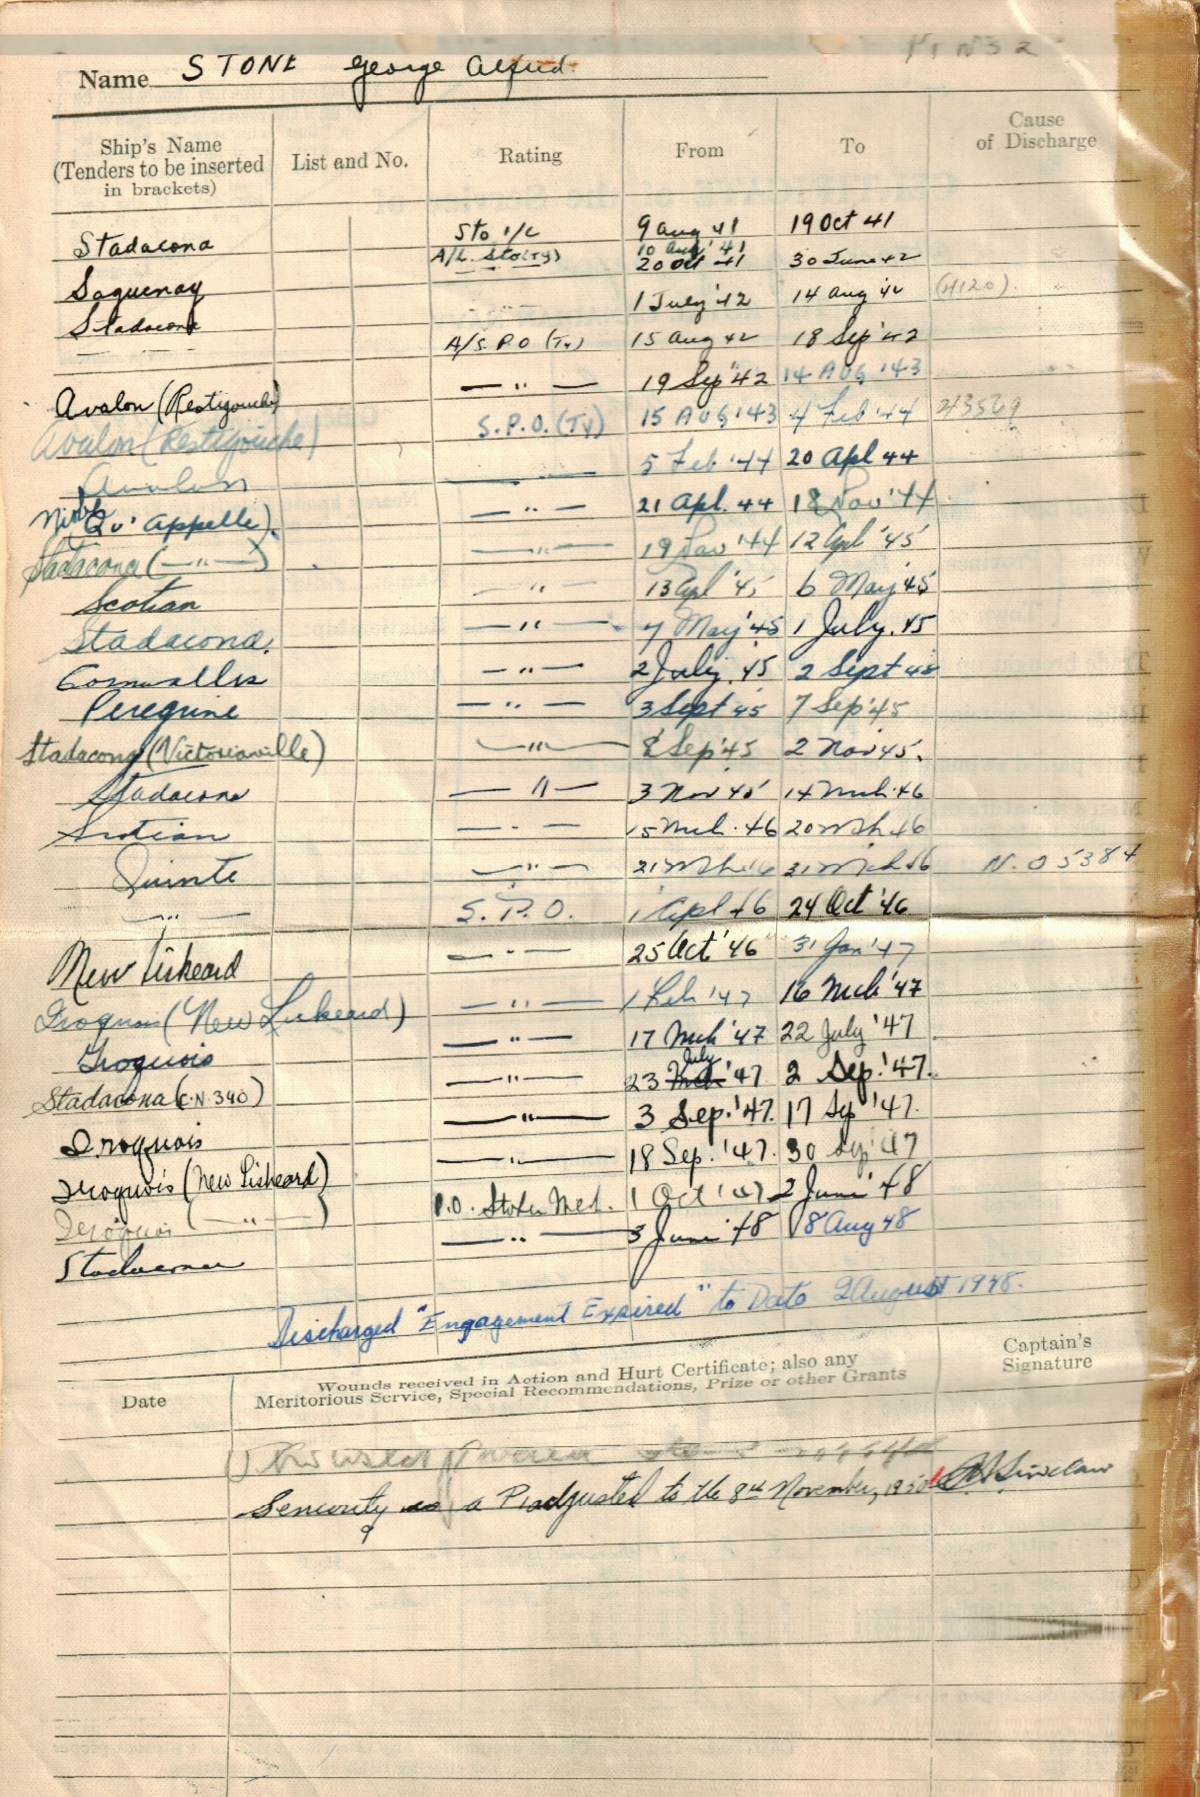 Name STONE George Alfred
Ship's Name (Tenders to be inserted in brackets) List and No. Rating From To Cause of Discharge
Stadacona Sto 1/c 9 Aug 41 19 Oct 41
A/L. Sto (Ty) 10 Aug '41
20 Oct 41 30 June 42
Saguenay 1 July '42 14 Aug '42 (4120)
Stadacona A/S.P.O (Ty) 15 Aug 42 18 Sep '42
— " — 19 Sep '42 14 AUG '43
Avalon (Restigouche) S.P.O. (Ty) 15 AUG '43 4 Feb '44 43569
Avalon (Restigouche) 5 Feb '44 20 Apl 44
Avalon — " — 21 Apl. 44 18 Nov '44
Qu'Appelle) — " — 19 Nov '44 12 Apl '45
Stadacona (— " —) — " — 13 Apl '45 6 May '45
Scotian — " — 7 May '45 1 July. 45
Stadacona. — " — 2 July. 45 2 Sept 45
Cornwallis — " — 3 Sept 45 7 Sep '45
Peregrine — " — 8 Sep '45 2 Nov 45.
Stadacona (Victoriaville) — " — 3 Nov 45 14 Mch. 46
Stadacona — " — 15 Mch. 46 20 Mch 46
Scotian — " — 21 Mch 46 31 Mch 46 N. 05384
Quinte S.P.O. 1 Apl 46 24 Oct '46
— " — — " — 25 Oct '46 31 Jan '47
New Liskeard — " — 1 Feb '47 16 Mch '47
Iroquois (New Liskeard) — " — 17 Mch '47 22 July '47
Iroquois — " — 23 July '47 2 Sep. '47.
Stadacona (C.N. 390) — " — 3 Sep. '47. 17 Sep '47.
Iroquois — " — 18 Sep. '47. 30 Sep '47
Iroquois (New Liskeard) P.O. Stoker Mech. 1 Oct '47 2 June '48
Iroquois (— " —) — " — 3 June '48 18 Aug 48
Stadacona
Discharged "Engagement Expired" to Date 9 August 1948.
Date Wounds received in Action and Hurt Certificate; also any Meritorious Service, Special Recommendations, Prize or other Grants Captain's Signature
Seniority as a P. adjusted to the 8th November, 1950